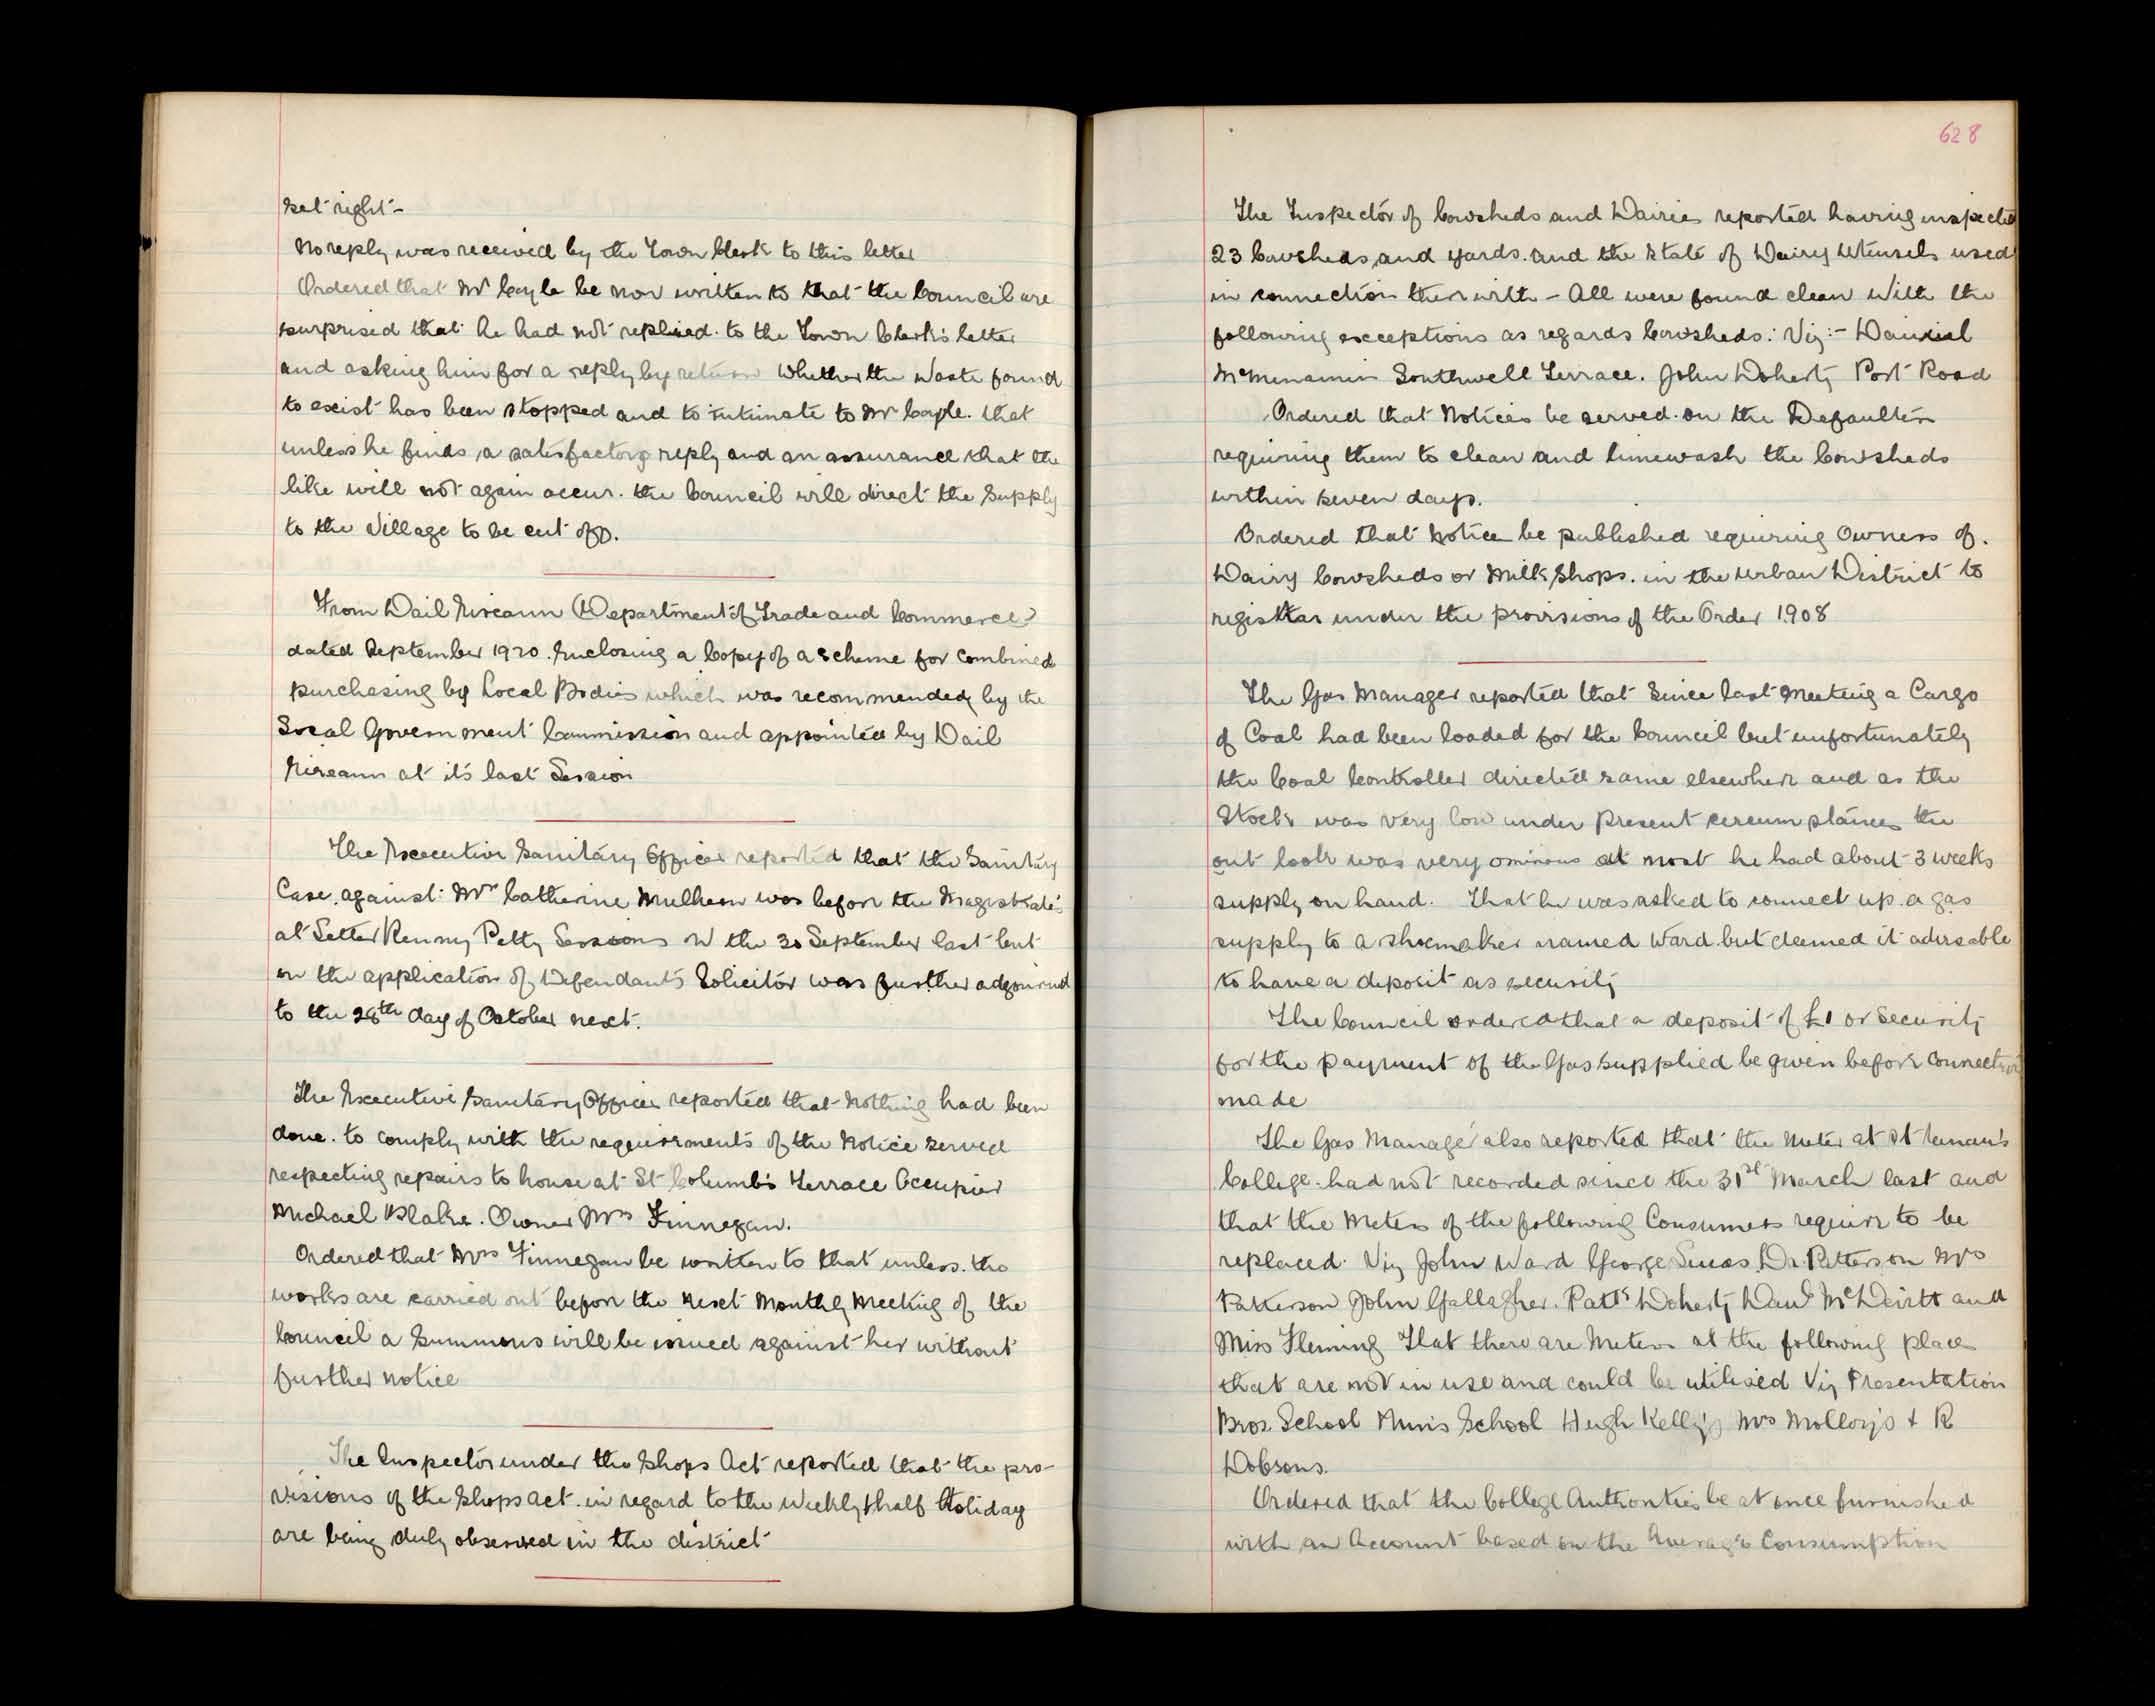 set right-
No reply was received by the Town Clerk to this letter
Ordered that Mr Coyle be now written to that the Council are
surprised that he had not replied to the Town Clerk's letter
and asking him for a reply by return whether the Waste found
to exist has been stopped and to intimate to Mr Coyle. that
unless he finds a satisfactory reply and an assurance that the
like will not again occur. the Council will direct the Supply
to the Village to be cut off.
From Dail Eireann (Department of Trade and Commerce)
dated September 1920. Enclosing a Copy of a Scheme for combined
purchasing by Local Bodies which was recommended by the
Local Government Commission and appointed by Dail
Eireann at it's last Session
The Executive Sanitary Officer reported that the Sanitary
Case against Mrs Catherine Mulhern was before the Magistrates
at LetterKenny Petty Sessions on the 30 September last but
on the application of Defendants Solicitor was further adjourned
to the 28th day of October next.
The Executive Sanitary Officer reported that nothing had been
done. to comply with the requirements of the Notice served
respecting repairs to house at St Columb's Terrace Occupier
Michael Blake. Owner Mrs Finnegan.
Ordered that Mrs Finnegan be written to that unless. the
works are carried out before the next Monthly Meeting of the
Council a Summons will be issued against her without
further notice
The Inspector under the Shops Act reported that the pro-
visions of the Shops Act. in regard to the Weekly half Holiday
are being duly observed in the district
628
The Inspector of Cowsheds and Dairies reported having inspected
23 Cowsheds and yards. and the state of Dairy Utensils used
in connection therewith - All were found clean with the
following exceptions as regards Cowsheds: Viz:- Daniel
McMenamin Southwell Terrace. John Doherty Port Road
Ordered that Notices be served on the Defaulters
requiring them to clean and limewash the Cowsheds
within seven days.
Ordered that Notice be published requiring Owners of.
Dairy Cowsheds or Milk Shops. in the Urban District to
register under the provisions of the Order 1908
The Gas Manager reported that since last Meeting a Cargo
of Coal had been loaded for the Council but unfortunately
the Coal Controller directed same elsewhere and as the
Stocks was very low under present circumstances the
out look was very ominous at most he had about 3 weeks
supply on hand. That he was asked to connect up a gas
supply to a shoemaker named Ward but deemed it advisable
to have a deposit as security
The Council ordered that a deposit of £1 or Security
for the payment of the Gas supplied be given before connection
made
The Gas Manager also reported that the Meter at St Eunan's
College had not recorded since the 31st March last and
that the Meters of the following Consumers require to be
replaced. Viz John Ward George Lucas Dr. Patterson Mrs
Patterson John Gallagher. Patk Doherty Danl McDevitt and
Miss Fleming That there are Meters at the following places
that are not in use and could be utilised Viz Presentation
Bros. School Nun's School Hugh Kelly's Mrs Molloy's & R
Dobsons.
Ordered that the College Authorities be at once furnished
with an Account based on the Average Consumption